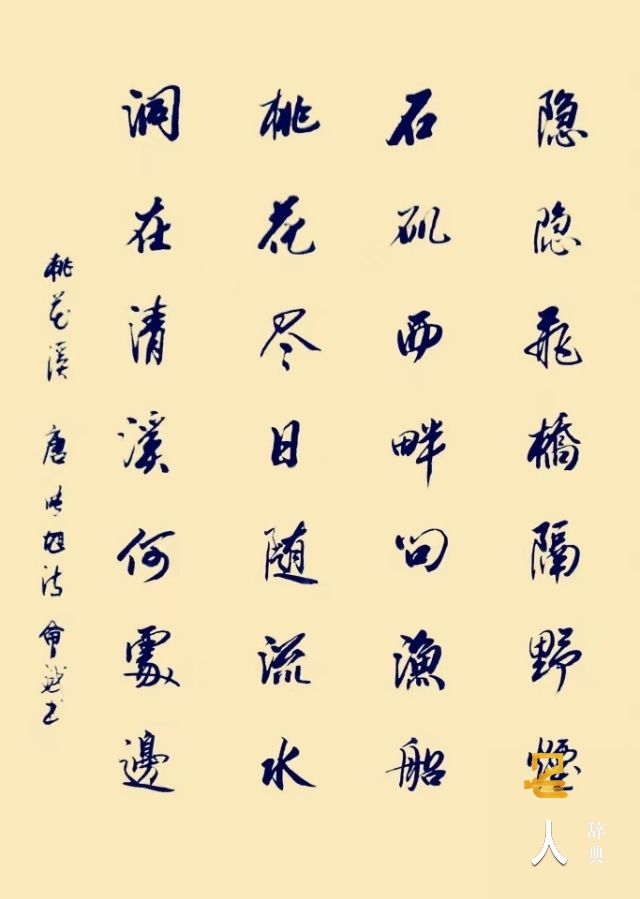 隐隐飛橋隔野煙
石矶西畔问漁船
桃花尽日随流水
洞在清溪何處邊
桃花溪 唐 张旭诗 书
人
辞典